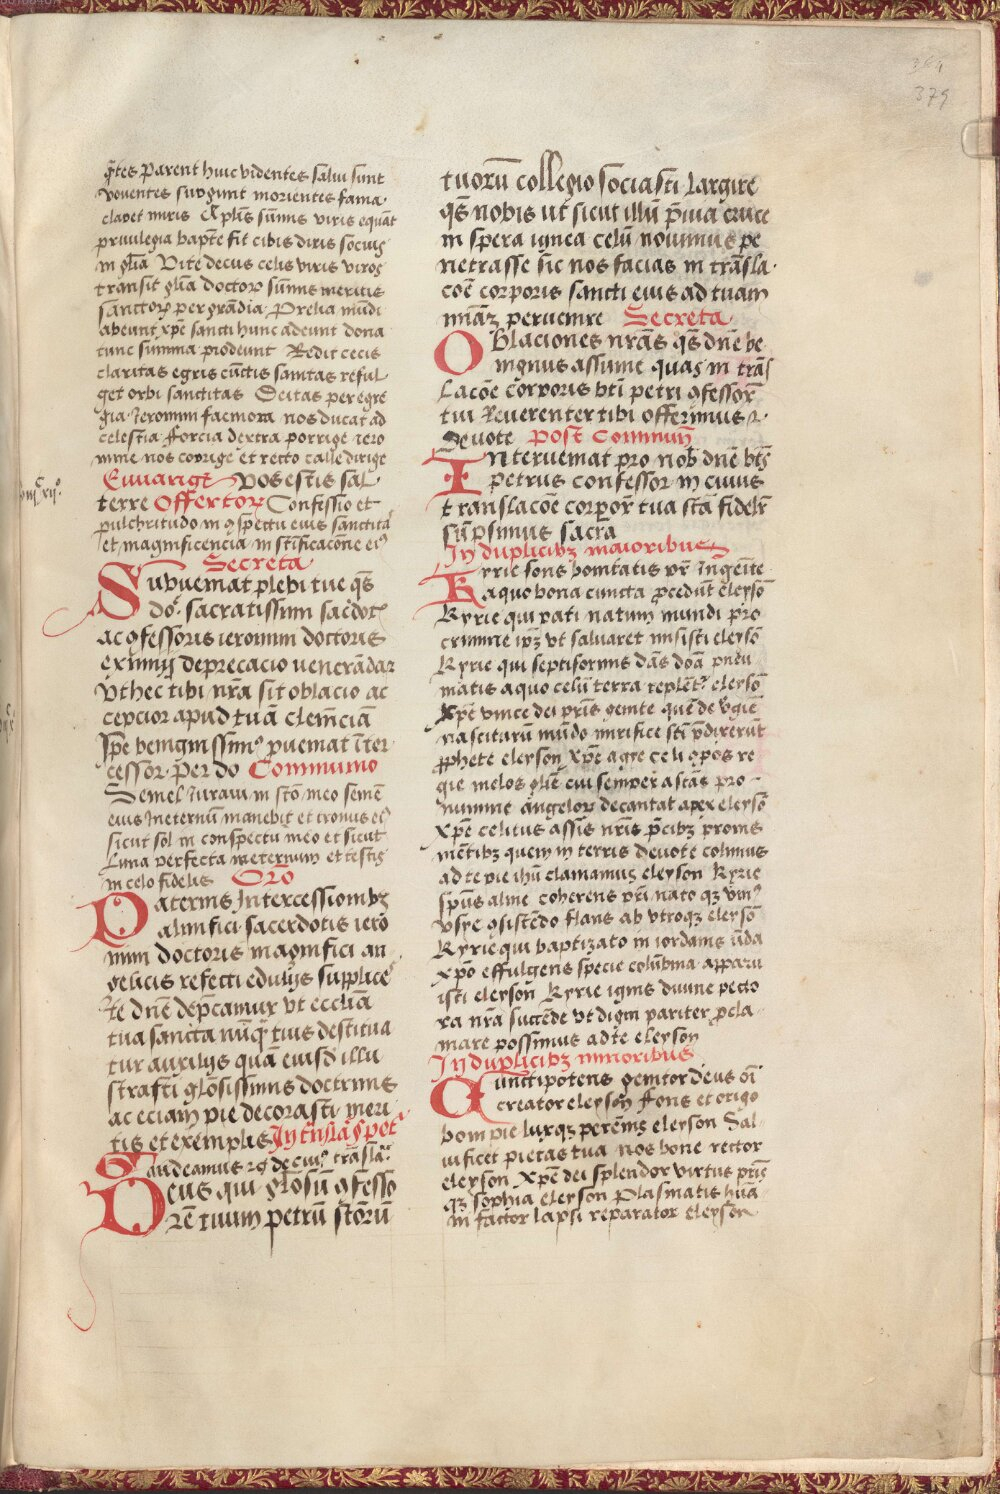 364
379
parent huic videntes salui sunt
vouentes surgunt morientes fama
claret miris Explis sūmis viris equāt
priuilegia bapte fit cibis diris socius
in glīa Vite decus celis viris viros
transit glīa doctoꝝ sūmis meritis
sanctoꝝ per grādia Prelia mūdi
abeunt xp̄e sancti hunc adeunt dona
tunc summa prodeunt Redit cecis
claritas egris cūctis sanitas reful
get orbi sanctitas Deitas per egre
gia Jeronimi facinora nos ducat ad
celestia Forcia dextra porrige iero
nime nos corrige et recto calle dirige
Euuangt Vos estis sal
terre Offertoꝝ Confessio et
pulchritudo in ꝯspectu eius sanctita
et magnificencia in stīficacōne eiꝰ
Secreta
Subueniat plebi tue qs
do. sacratissimi sacdot
ac ꝯfessoris ieronimi doctoris
eximij deprecacio uenerādar
Vt hec tibi nr̄a sit oblacio ac
cepcior apud tuā clemēciā
Ip̄e benignissimꝰ pueniat īter
cessor. Per do Communio
Semel Juraui in stō meo semē
eius Ineternū manebit et tronus eiꝰ
sicut sol in conspectu meo et sicut
Luna perfecta ineternum et testis
in celo fidelis Orō
Paternis Intercessionibꝫ
almifici sacerdotis iero
nimi doctoris magnifici an
gelicis refecti edulijs supplice
te dnē dep̄camur vt eccliā
tua sancta nūqꝫ tuis destitua
tur auxilijs quā eiusd illu
strasti glōsissimis doctrinis
ac eciam pie decorasti meri
tis et exemplis In trnslas pet
Gaudeamus rꝫ de ciuiꝰ trāsla.
Deus qui glōsū ꝯfesso
rē tuum petrū stōrū
tuorū collegio sociasti Largire
qs nobis ut sicut illū p̄uia cruce
in spera ignea celū nouimus pe
netrasse sic nos facias in trāsla
coē corporis sancti eius ad tuam
miāꝫ peruenire Secreta
Oblaciones nr̄as qs dnē be
nignus assume quas in trās
lacōe corporis bti petri ꝯfessor
tui Reuerenter tibi offerimus ꝛ
deuote Post Commun
Interueniat pro nob dnē bts
petrus confessor in cuius
translacōe corpor tua stā fidelr
sūpsimus sacra
In duplicibꝫ maioribus
Kyrie fons bonitatis pr Ingēite
a quo bona cuncta procedūt eleysō
Kyrie qui pati natum mundi pro
crimine ipꝫ vt saluaret misisti eleysō
Kyrie qui septiformis dās doā pneu
matis a quo celū terra replentꝰ eleysō
Xp̄e vnice dei pr̄is genite quē de v̄gīe
nascitarū mūdo mirifice sti p̄dixerūt
prophete eleyson Xp̄e agie celi ꝯpos re
gie melos glīe cui semper astās pro
numine angeloꝝ decantat apex eleysō
Xp̄e celitus assis nr̄is p̄cibꝫ pronis
mētibꝫ quem in terris deuote colimus
ad te pie ihū clamamus eleyson Kyrie
spūs alme coherens pri nato qꝫ vniꝰ
vsye ꝯsistēdo flans ab vtroqꝫ eleysō
Kyrie qui baptizato in iordanis ūda
xp̄o effulgens specie colūbina apparu
isti eleyson Kyrie ignis diuine pecto
ra nr̄a succēde vt digni pariter procla
mare possimus ad te eleyson
In duplicibꝫ minoribus
Cunctipotens genitor deus oī
creator eleyson Fons et origo
boni pie luxqꝫ perēnis eleyson Sal
uificet pietas tua nos bone rector
eleyson Xp̄e dei splendor virtus ptris
qꝫ sophia eleyson Plasmatis huā
ni factor lapsi reparator eleyson